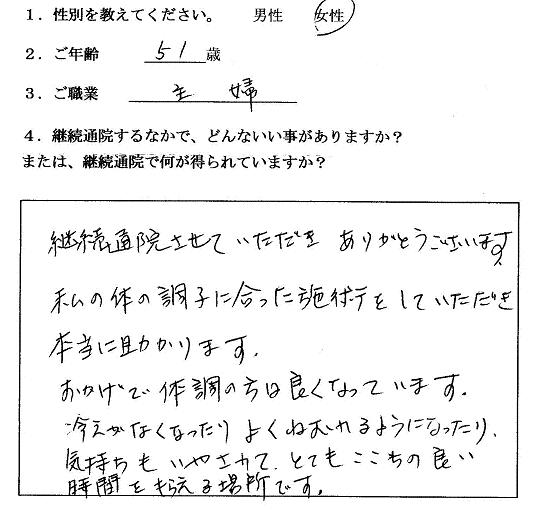 1．性別を教えてください。　男性　女性
2．ご年齢　51歳
3．ご職業　主婦
4．継続通院するなかで、どんないい事がありますか？
または、継続通院で何が得られていますか？
継続通院させていただき ありがとうございます。
私の体の調子に合った施術をしていただき
本当に助かります。
おかげで体調の方は良くなっています。
冷えがなくなったり よくねむれるようになったり、
気持ちもいやされて、とてもここちの良い
時間をもらえる場所です。